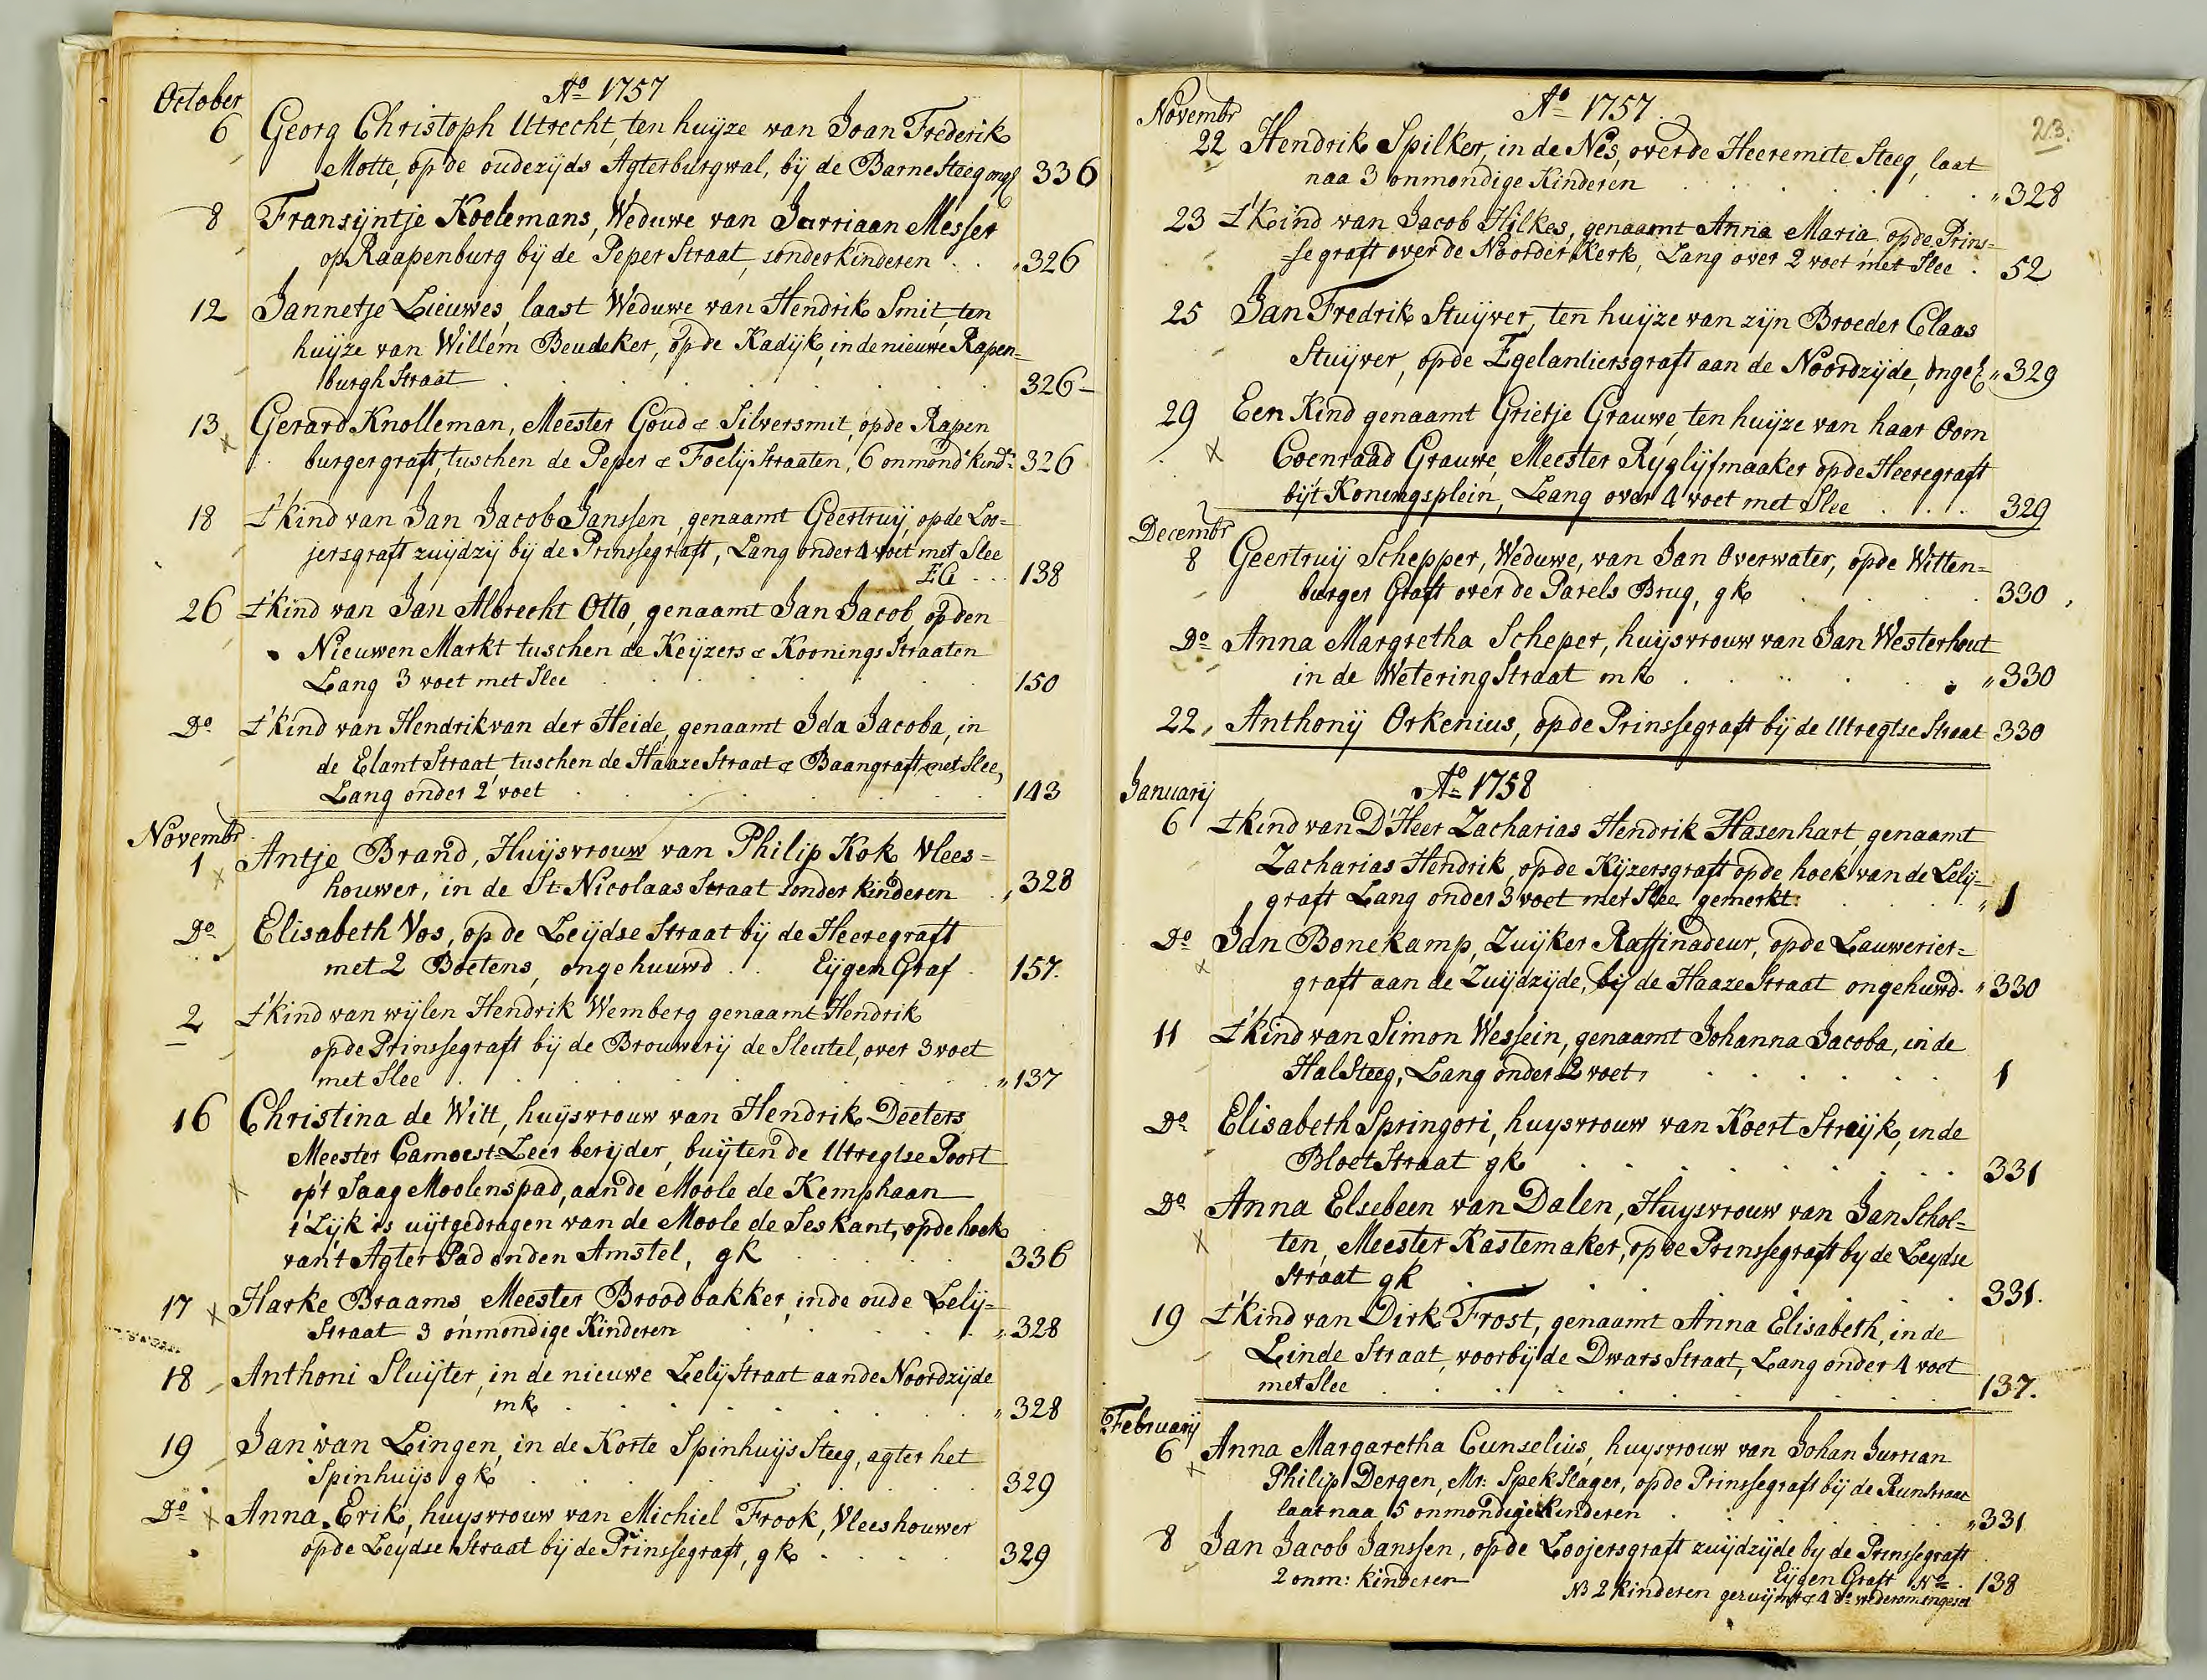 Ao 1757
October
6 Georg Christoph Utrecht, ten huijze van Joan Frederik
Motte, op de oudezijds Agterburgwal, bij de Barnesteeg ong 336
8 Fransijntje Koelemans, Weduwe van Jurriaan Messer
op Raapenburg bij de Peper Straat, sonder kinderen . . . 326
12 Jannetje Lieuwes, laast Weduwe van Hendrik Smit, ten
huijze van Willem Beudeker, op de Kadijk, in de nieuwe Rapen=
burgh Straat 326 -
13 x Gerard Knolleman, Meester Goud & Silversmit, op de Rapen
burgergraft, tuschen de Peper & Foelij Straaten, 6 onmond kindn: 326
18 t'kind van Jan Jacob Janssen, genaamt Geertruij, op de Loo=
jersgraft zuijdzij bij de Prinssegraft, Lang onder 4 voet met Slee
EG . . . 138
26 t'kind van Jan Albrecht Otto, genaamt Jan Jacob, op den
Nieuwen Markt tuschen de Keijzers & Koonings Straaten
Lang 3 voet met Slee 150
Do t'kind van Hendrik van der Heide, genaamt Ida Jacoba, in
de Elant Straat tuschen de Haaze Straat & Baangraft met Slee,
Lang onder 2 voet 143
Novembr
1 x Antje Brand, Huijsvrouw van Philip Kok Vlees=
houwer, in de St Nicolaas Straat sonder kinderen " 328
Do Elisabeth Vos, op de Leijdse Straat bij de Heeregraft
met 2 Boetens, ongehuuwd . . Eijgen Graf 157.
2 t'kind van wijlen Hendrik Wemberg genaamt Hendrik
op de Prinssegraft bij de Brouwerij de Sleutel, over 3 voet
met Slee " 137
16 Christina de Witt, huijsvrouw van Hendrik Deeters
Meester Camoest=Leer berijder, buijten de Utregtse Poort
x op't Saag Moolenspad, aan de Moole de Kemphaan
t'Lijk is uijtgedragen van de Moole de Ses kant, op de hoek
van't Agter Pad en den Amstel, gk 336
17 x Harke Braams, Meester Broodbakker, in de oude Lelij=
Straat 3 onmondige Kinderen " 328
18 Anthoni Sluijter, in de nieuwe Lelij Straat aan de Noordzijde
mk " 328
19 Jan van Lingen, in de Korte Spinhuijs Steeg, agter het
Spinhuijs gk 329
Do x Anna Erik, huijsvrouw van Michiel Frook, Vleeshouwer
op de Leijdse Straat bij de Prinssegraft, gk 329
Ao 1757
23.
Novembr
22 Hendrik Spilker, in de Nes, over de Heeremite Steeg, laat
naa 3 onmondige Kinderen " 328
23 t'Keind van Jacob Hilkes, genaamt Anna Maria, op de Prins=
=segraft over de Noorder Kerk, Lang over 2 voet met Slee . 52
25 Jan Fredrik Stuijver, ten huijze van zijn Broeder Claas
Stuijver, op de Egelantiersgraft aan de Noordzijde, ongeh " 329
29 Een Kind genaamt Grietje Grauwe, ten huijze van haar Oom
x Coenraad Grauwe, Meester Rijglijfmaaker op de Heeregraft
bij't Koningsplein, Lang over 4 voet met Slee . . . 329
Decembr
8 Geertruij Schepper, Weduwe, van Jan Overwater, op de Witten=
burger Graft over de Parels Brug, gk 330
Do Anna Margretha Scheper, huijsvrouw van Jan Westerhout
in de Wetering Straat mk " 330
22 Anthonij Orkenius, op de Prinssegraft bij de Utregtse Straat 330
Ao 1758
Januarij
6 t'kind van D'Heer Zacharias Hendrik Hasenhart, genaamt
Zacharias Hendrik, op de Kijzersgraft op de hoek van de Lelij=
graft Lang onder 3 voet met Slee gemerkt: " 1
Do x Jan Bonekamp, Zuijker Raffinadeur, op de Lauwerier=
graft aan de Zuijdzijde, bij de Haaze Straat ongehuwd. " 330
11 t'kind van Simon Wessein, genaamt Johanna Jacoba, in de
Hal Steeg, Lang onder 2 voet 1
Do Elisabeth Springori, huysvrouw van Koert Streijk, in de
Bloet Straat gk 331
Do x Anna Elsebeen van Dalen, Huysvrouw van Jan Schol=
ten, Meester Kastemaker, op de Prinssegraft by de Leydse
Straat gk 331.
19 t'kind van Dirk Frost, genaamt Anna Elisabeth, in de
Linde Straat, voorbij de Dwars Straat, Lang onder 4 voet
met Slee 137.
Februarij
6 x Anna Margaretha Cunselius, huysvrouw van Johan Jurrian
Philip Dergen, Mr: Spek Slager, op de Prinssegraft bij de Runstraat
laat naa 5 onmondige Kinderen " 331
8 Jan Jacob Janssen, op de Loojersgraft zuijdzijde by de Prinssegraft
2 onm: kinderen Eijgen Graft No . 138
NB 2 kinderen geruijmt & 4 do wederom ingeset